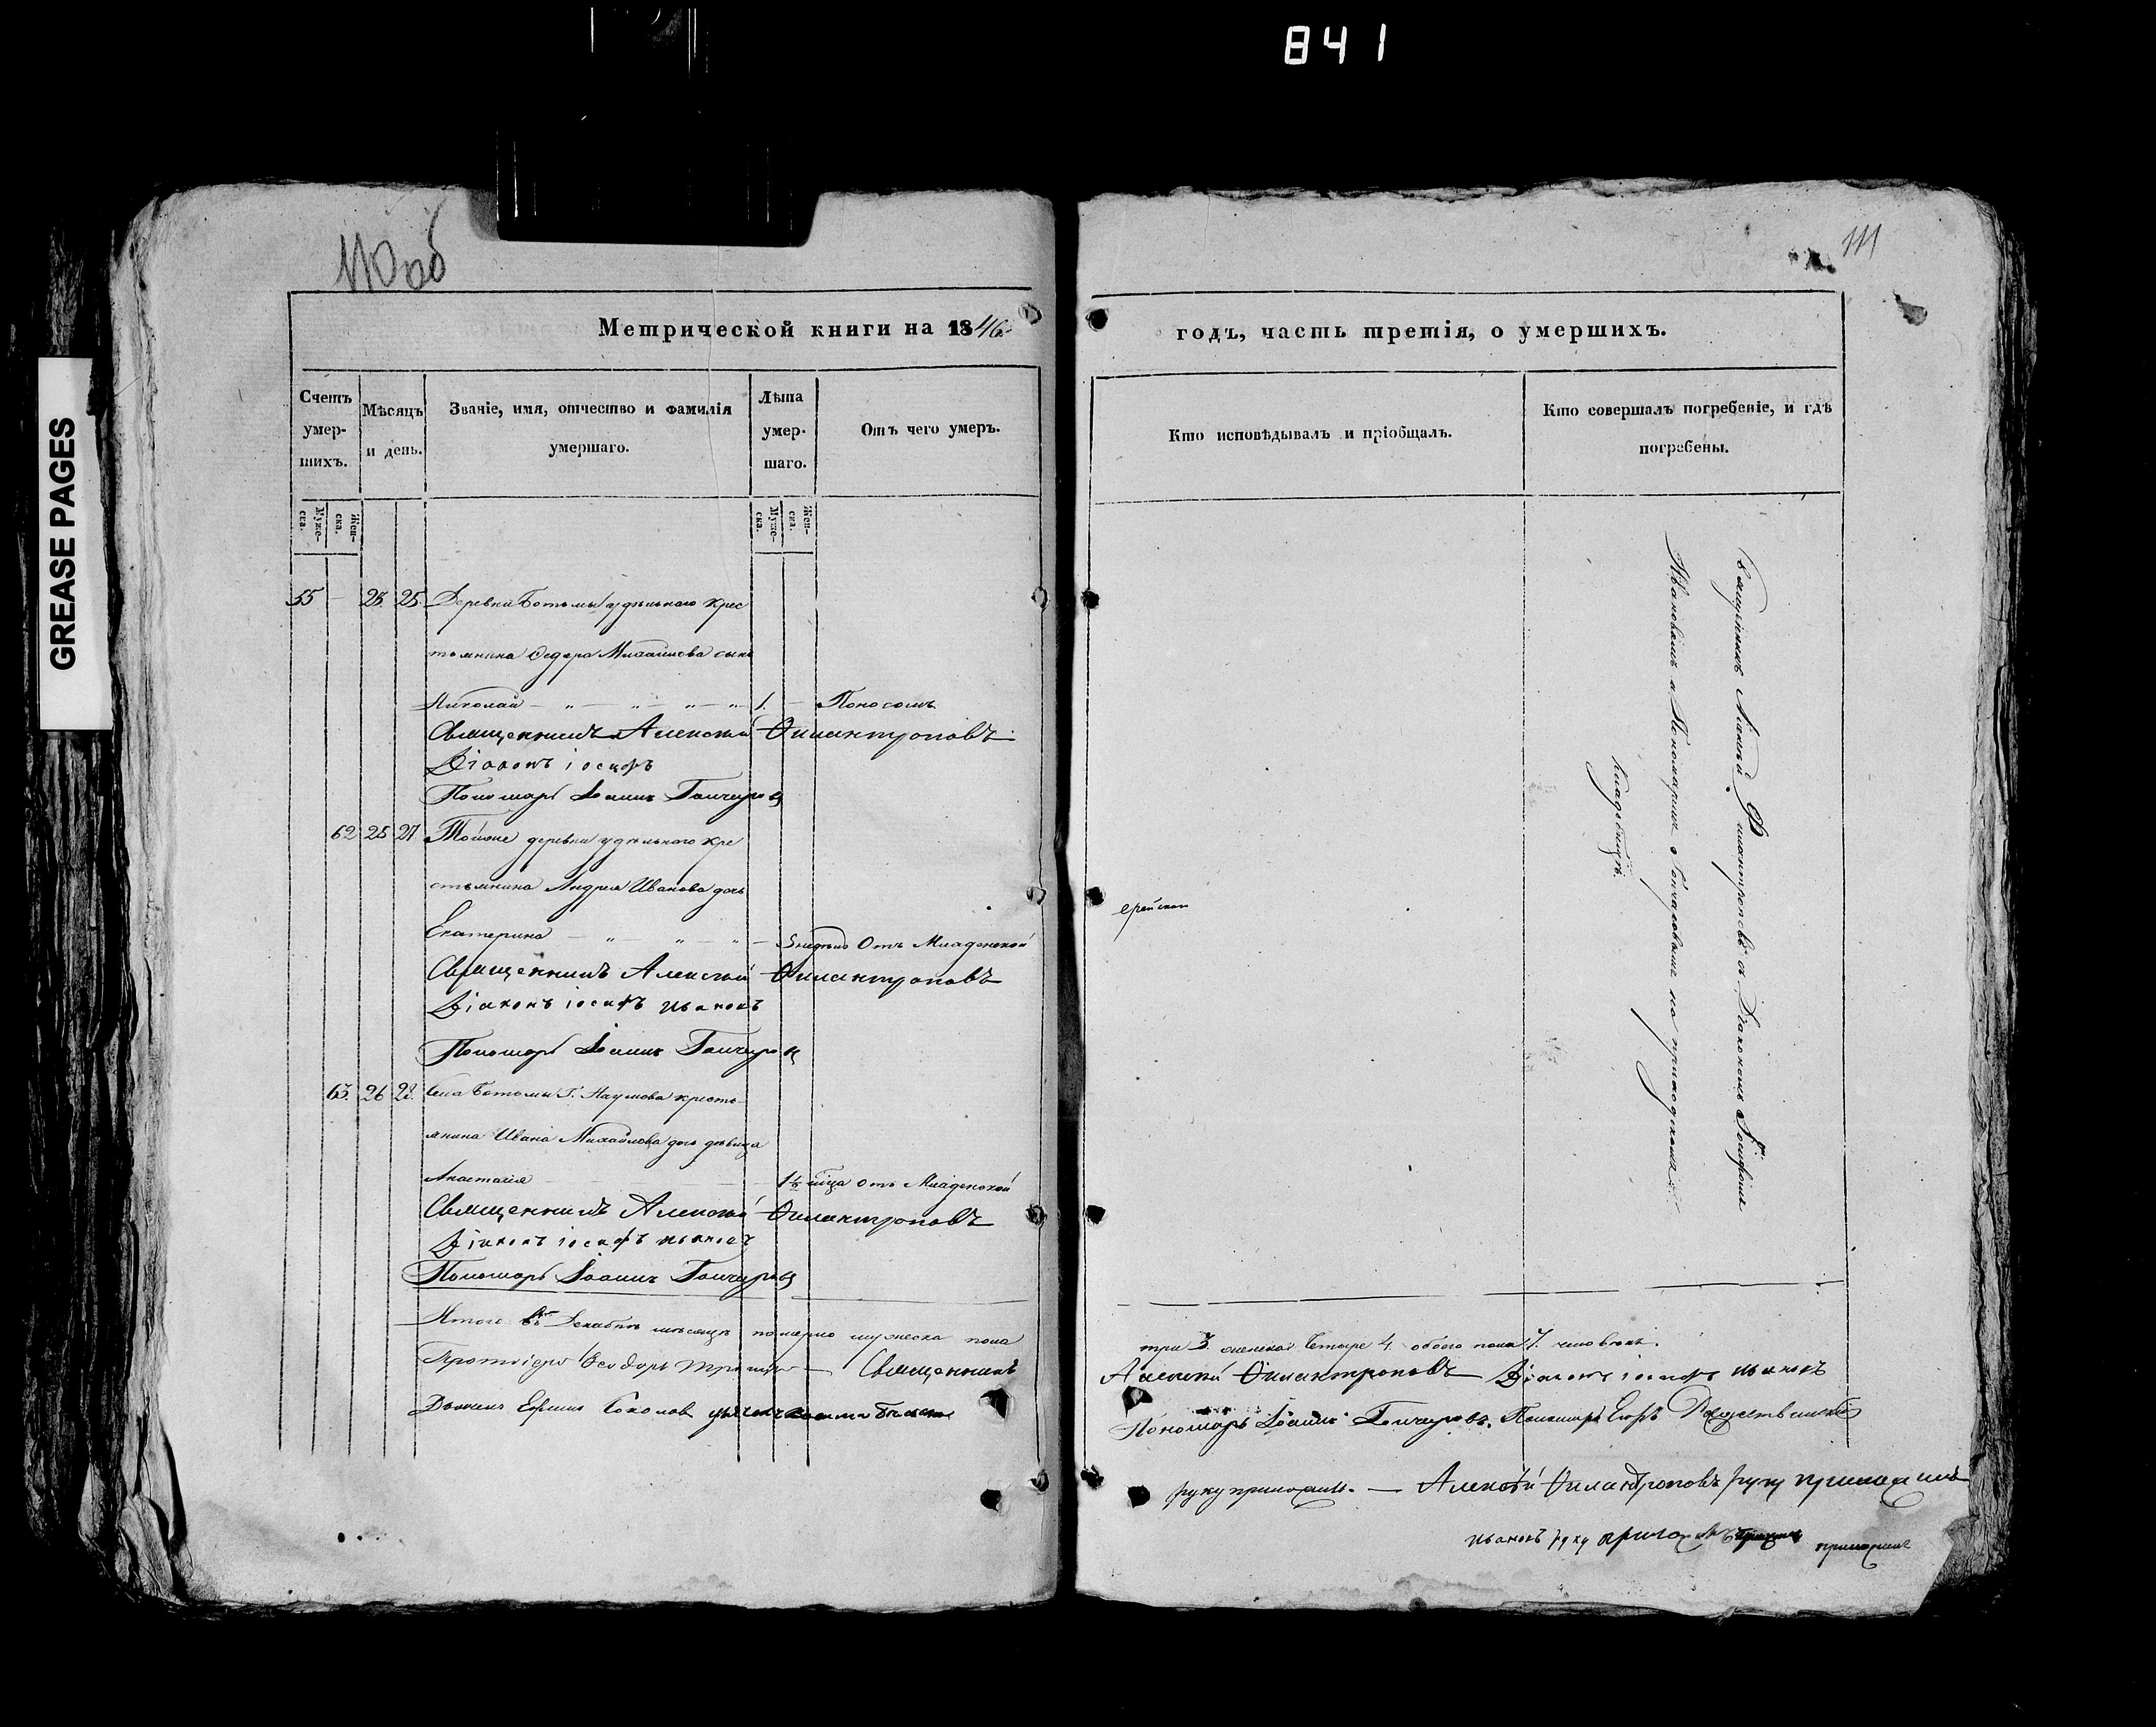 841
GREASE PAGES
110об
111
Метрической книги на 1846
годъ, часть третія, о умершихъ.
Счетъ умер-шихъ.
Мѣсяцъ и день.
Званіе, имя, отчество и фамилія умершаго.
Лѣта умер-шаго.
Отъ чего умеръ.
Кто исповѣдывалъ и пріобщалъ.
Кто совершалъ погребеніе, и гдѣ погребены.
Муже-ска.
Жен-ска.
Муже-ска.
Жен-ска.
55 — 23 25 Деревни Ботьмы удѣльнаго крес
тьянина Федора Михайлова сынъ
Николай — „ — „ — „ — „ 1. — Поносомъ
Священникъ Алексѣй Филантроповъ
Діаконъ іосифъ
Пономарь Іоаннъ Гончаровъ
62 25 27 Той же деревни удѣльнаго кре
стьянина Андрея Иванова дочь
Екатерина — „ — „ — „ — 5 недѣль Отъ Младенской
Священникъ Алексѣй Филантроповъ
Діаконъ іосифъ ивановъ
Пономарь Іоаннъ Гончаровъ
63. 26 28. Села Ботьмы Г. Наумова кресть
янина Ивана Михайлова дочь дѣвица
Анастасія 1½ мѣца отъ Младенской
Священникъ Алексѣй Филантроповъ
Діаконъ іосифъ ивановъ
Пономарь Іоаннъ Гончаровъ
Итого въ Декабрѣ мѣсяцѣ померло мужеска пола
три 3. женска четыре 4. обоего пола 7. человѣкъ.
Протоіерей Ѳеодоръ Священникъ
Алексѣй Филантроповъ Діаконъ іосифъ ивановъ
Дьяконъ Ефимъ Соколов
Пономарь Іоаннъ Гончаровъ. Пономарь Егоръ Рождественскій
руку приложилъ. — Алексѣй Филантроповъ руку приложилъ
ивановъ руку приложилъ приложилъ
Священникъ Алексѣй Филантроповъ съ Діакономъ Іосифомъ
Ивановымъ и Пономаремъ Гончаровымъ на приходскомъ
кладбищѣ.